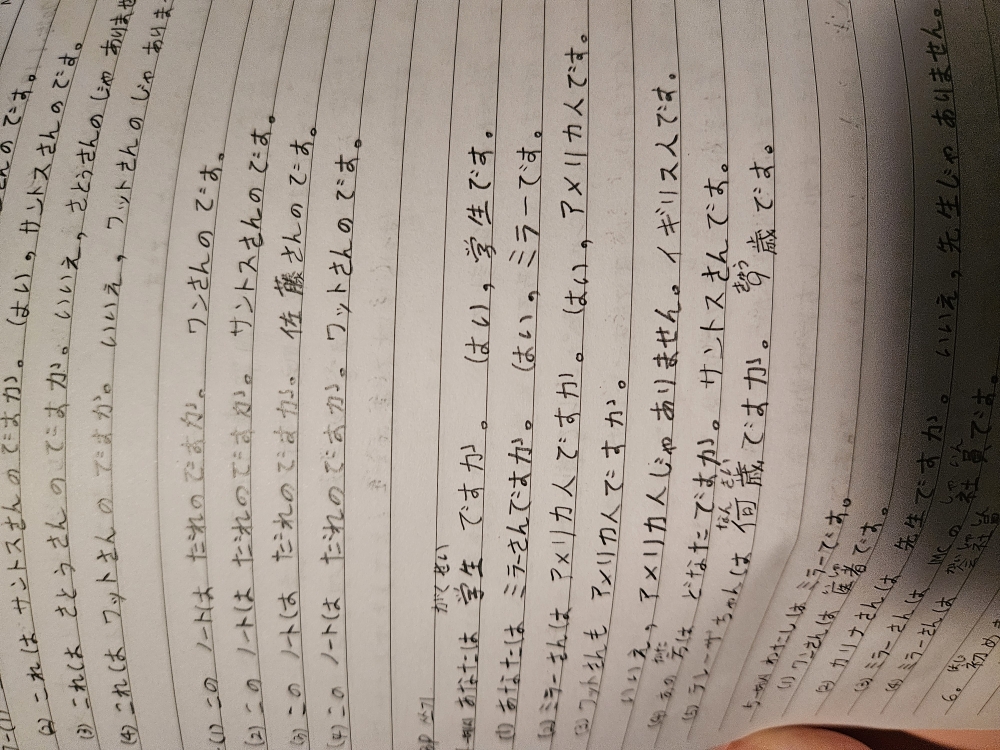 さんのです。
(1)
(2) これは サントスさんのですか。 はい。サントスさんのです。
(3) これは さとうさんのですか。 いいえ, さとうさんのじゃ ありませ
(4) これは ワットさんのですか。 いいえ, ワットさんのじゃ ありま
(1) この ノートは だれのですか。 ワンさんのです。
(2) この ノートは だれのですか。 サントスさんのです。
(3) この ノートは だれのですか。 佐藤さんのです。
(4) この ノートは だれのですか。 ワットさんのです。
がくせい
あなたは 学生 ですか。 はい, 学生です。
(1) あなたは ミラーさんですか。 はい。ミラーです。
(2) ミラーさんは アメリカ人ですか。 はい。アメリカ人です。
(3) ワットさんも アメリカ人ですか。
いいえ, アメリカ人じゃありません。イギリス人です。
(4) あの方は どなたですか。サントスさんです。
なん さい
(5) テレーザちゃんは 何歳ですか。 9歳です。
わたしは ミラーです。
(1) ワンさんは 医者です。
(2) カリナさんは
(3) ミラーさんは 先生ですか。 いいえ, 先生じゃありません。
(4) ミラーさんは IMCの 社員です。
6. 初め